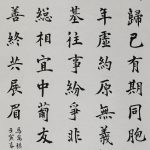 歸已有期同胞
年虛約原無義
基往事紛爭非
總相宜中葡友
善終共展眉